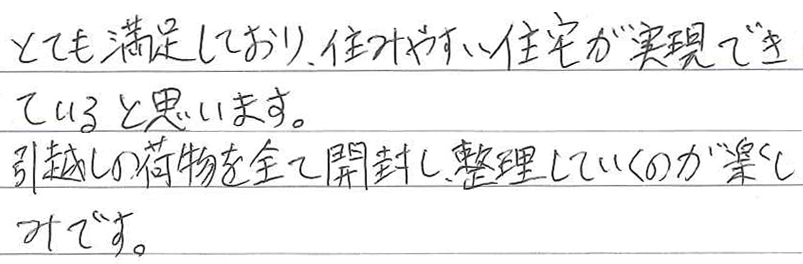 とても満足しており、住みやすい住宅が実現でき
ていると思います。
引越しの荷物を全て開封し、整理していくのが楽し
みです。